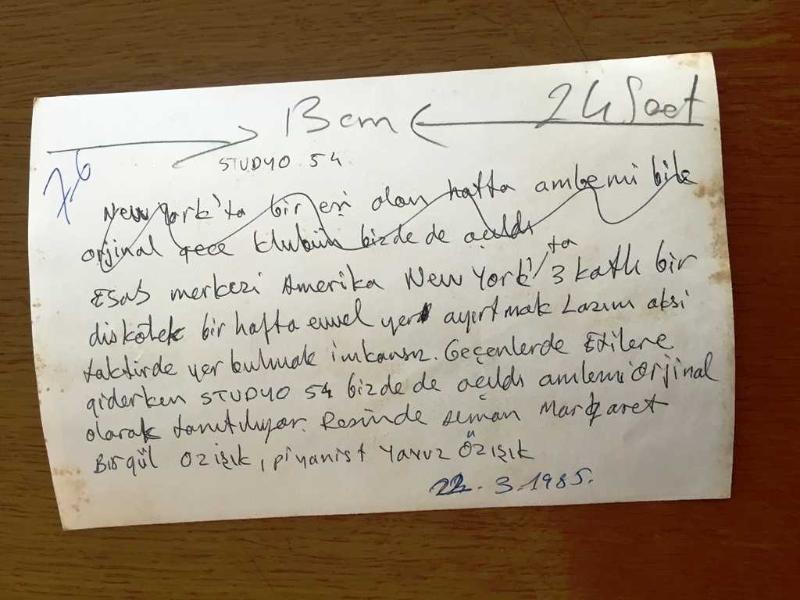 Bcm 24 Saet
7.6
STUDYO 54
New York'ta bir eşi olan hatta amblemi bile
orjinal gece klubün bizde de açıldı
Esas merkezi Amerika New York'ta 3 katlı bir
diskotek bir hafta evvel yer ayırtmak Lazım aksi
taktirde yer bulmak imkansız. Geçenlerde Etilere
giderken STUDYO 54 bizde de açıldı amlemi orjinal
olarak tanıtılıyor. Resimde Margaret
Birgül Özışık, piyanist Yavuz Özışık
22.3.1985.